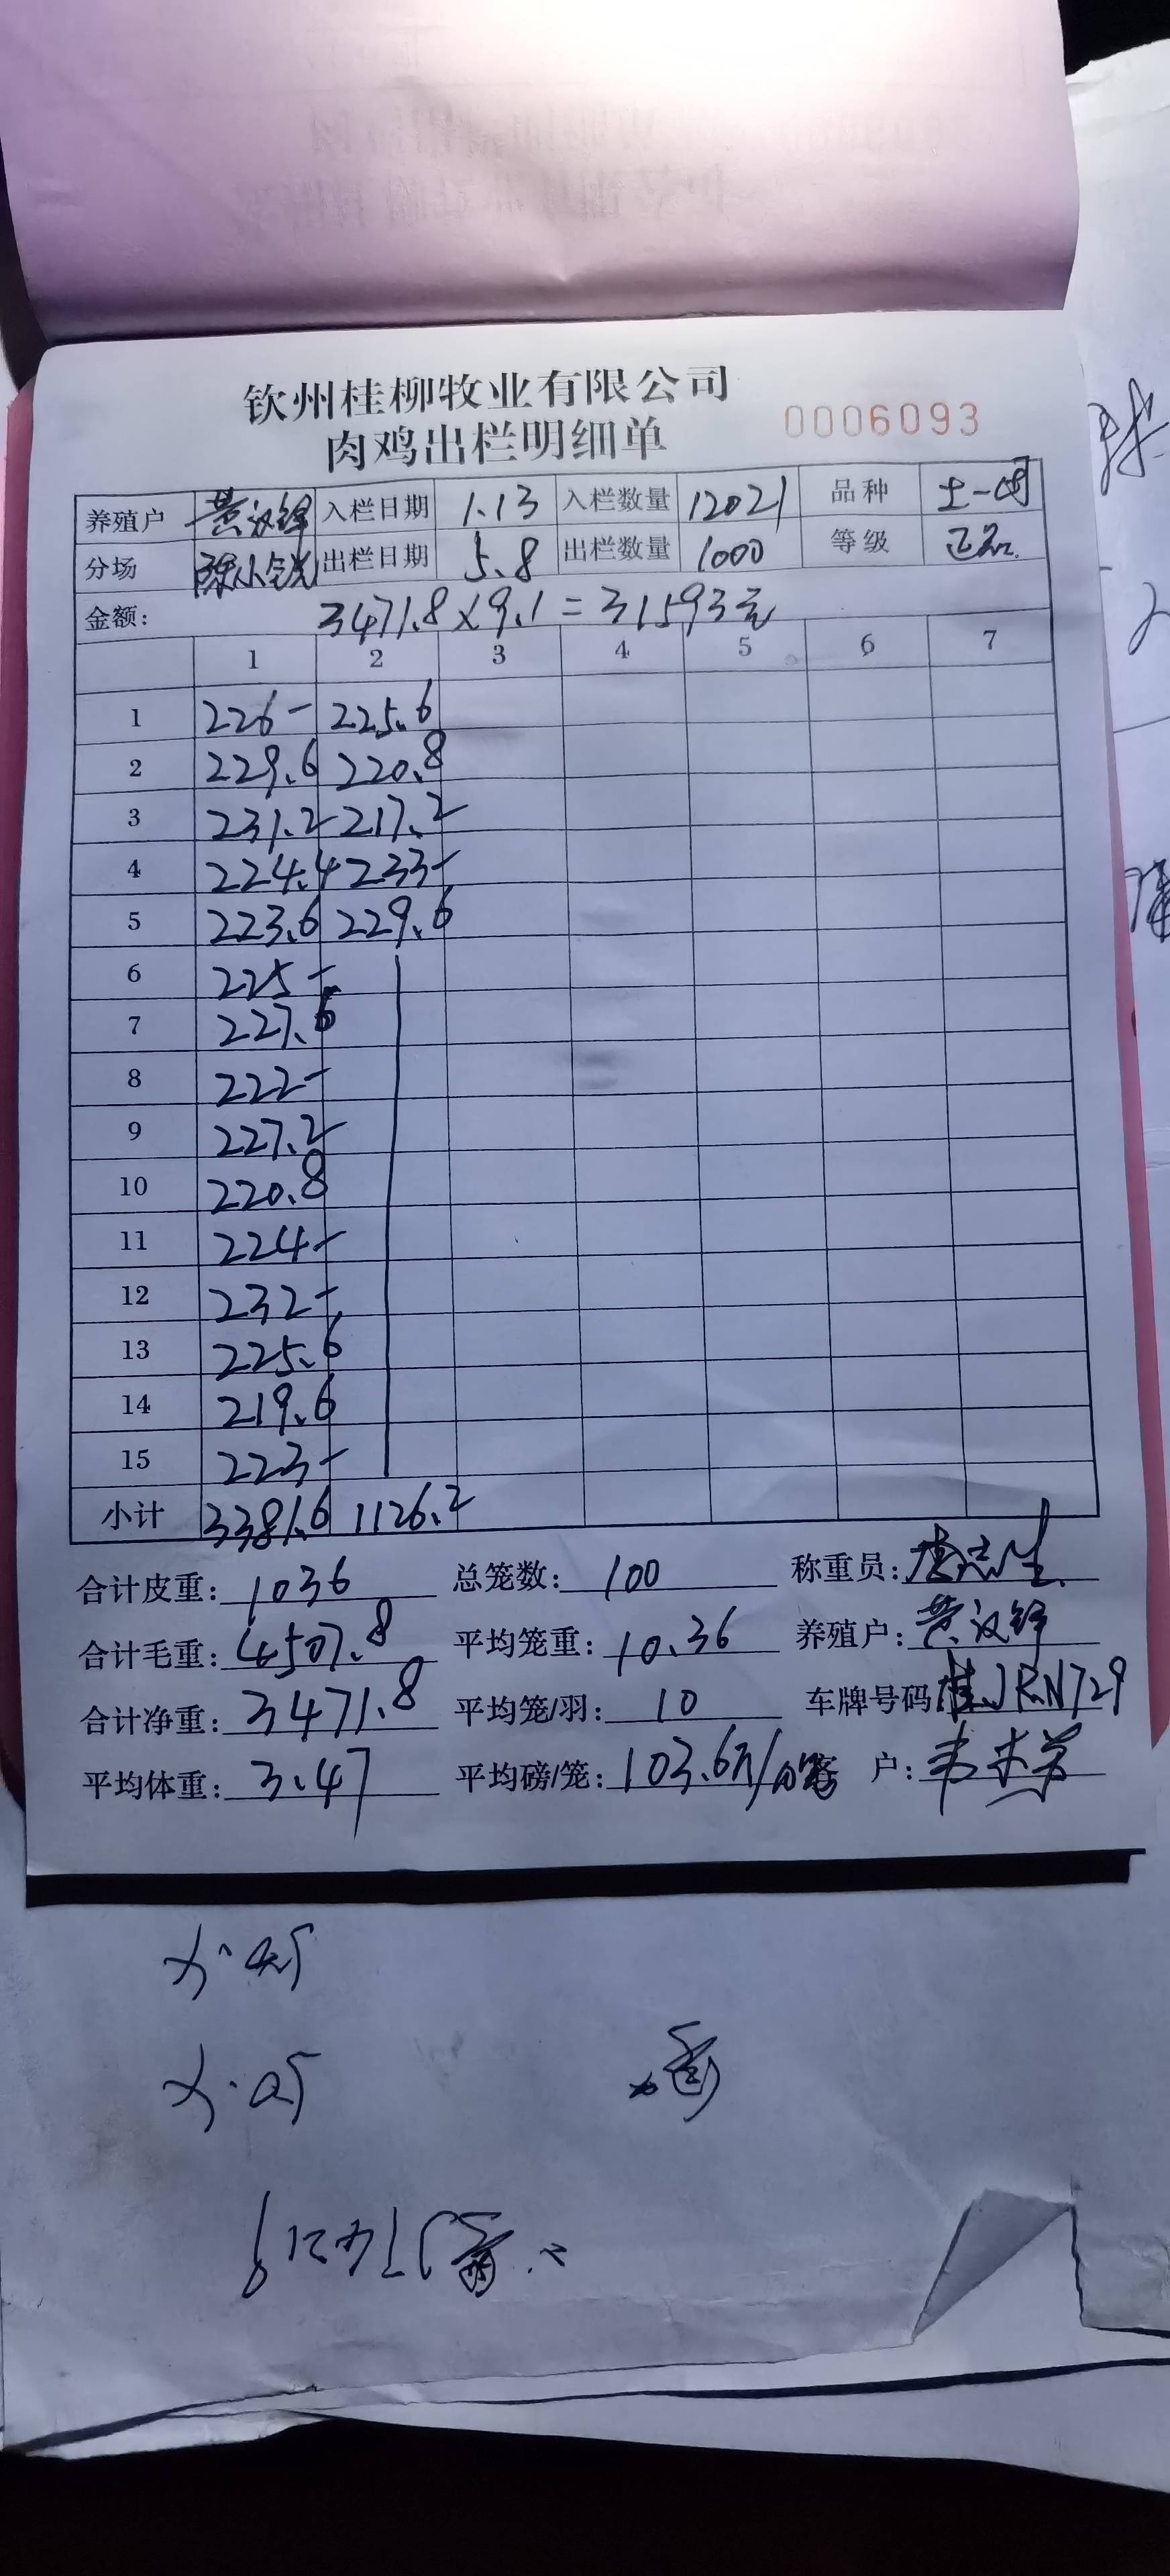 钦州桂柳牧业有限公司
肉鸡出栏明细单 0006093
养殖户 黄汉锋 入栏日期 1.13 入栏数量 12021 品种 土一
分场 陈小 出栏日期 5.8 出栏数量 1000 等级 正品
金额: 3471.8×9.1=31593元
1 2 3 4 5 6 7
1 226- 225.6
2 229.6 220.8
3 231.2 217.2
4 224.4 233-
5 223.6 229.6
6 225-
7 227.6
8 222-
9 227.2
10 220.8
11 224-
12 232-
13 225.6
14 219.6
15 223-
小计 3381.6 1126.2
合计皮重: 1036 总笼数: 100 称重员:
合计毛重: 4507.8 平均笼重: 10.36 养殖户: 黄汉锋
合计净重: 3471.8 平均笼/羽: 10 车牌号码: 桂JRN729
平均体重: 3.47 平均磅/笼: 103.6斤/10笼 户: